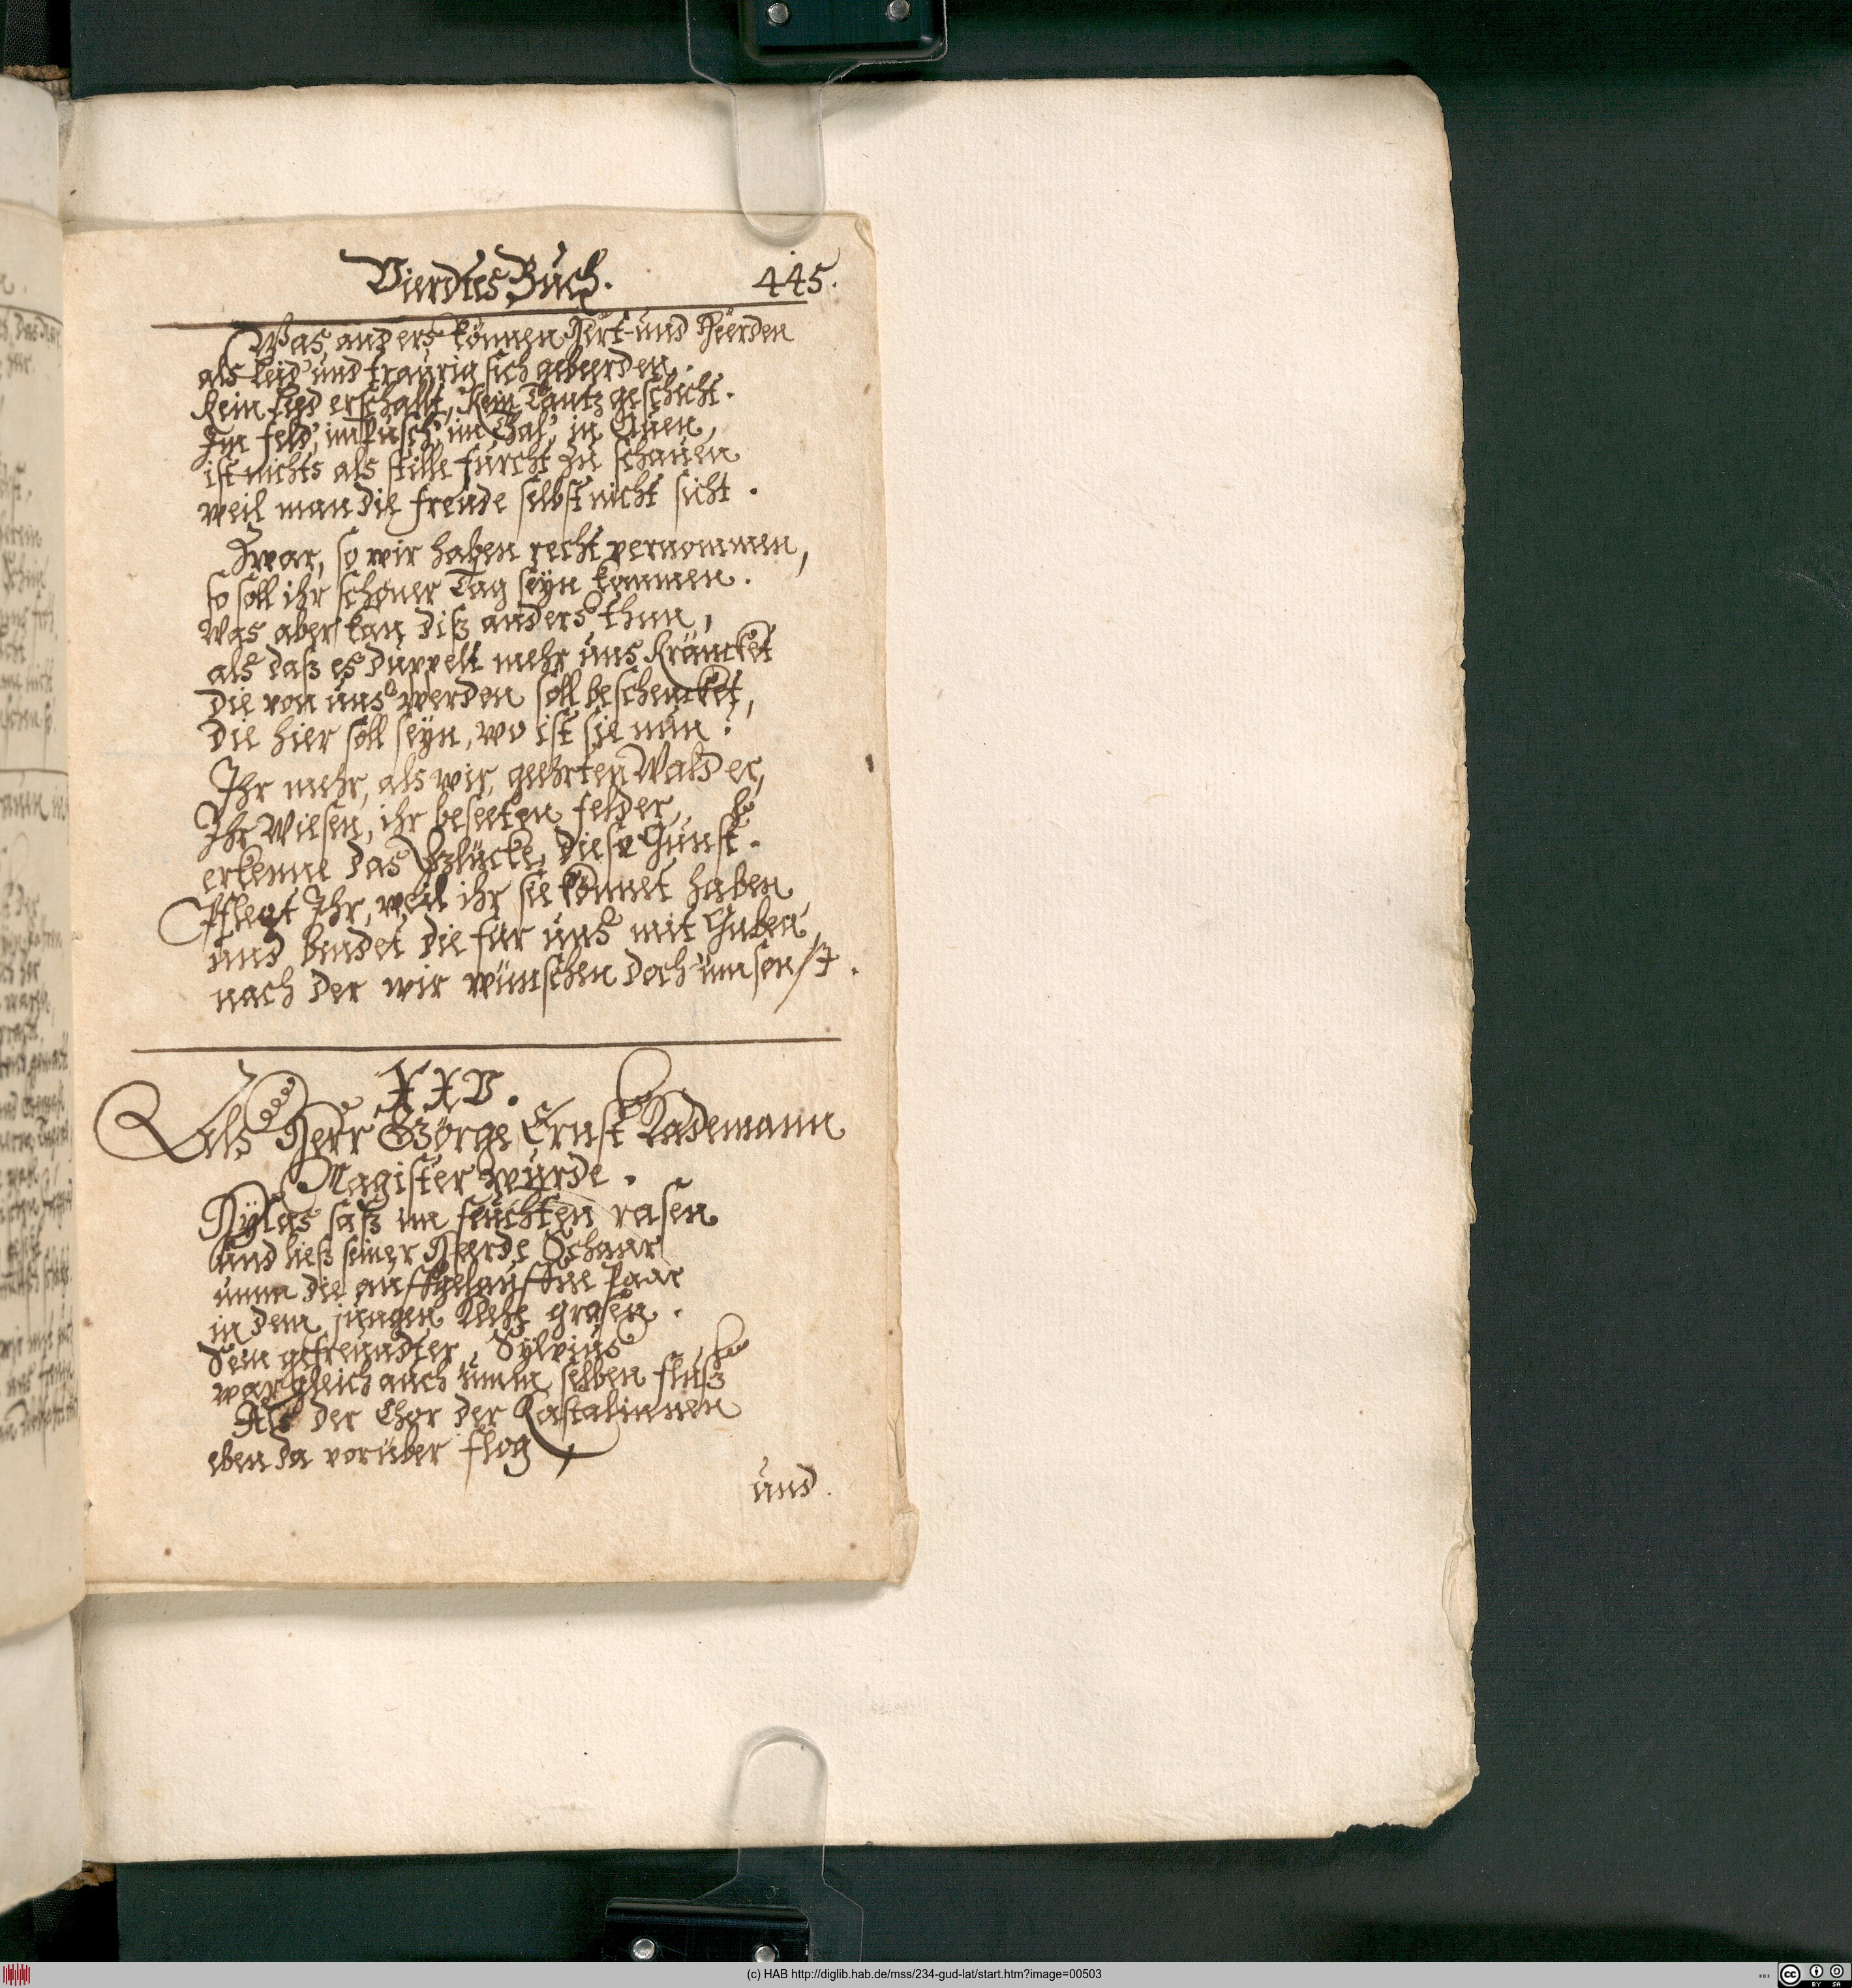 Vierdtes Buch. 445.
Was anders können Hirt- und Heerden
als leid' und traurig sich gebeerden.
kein Lied erschallt, kein Tantz geschicht.
Im feld', im pusch', im Thal', in Auen,
ist nichts als stille furcht zu schauen
weil man die freude selbst nicht sicht.
Zwar, so wir haben recht vernommen,
so soll ihr schöner Tag seyn kommen.
Was aber kan diß anders thun,
als daß es duppelt mehr uns kräncket
die von uns werden soll beschencket,
die hier soll seyn, wo ist sie nun?
Ihr mehr, als wir, geehrten Wälder,
Ihr Wiesen, ihr beseeten felder,
erkenne das Glücke, diese Gunst.
Pflegt Ihr, weil ihr sie könnet haben,
und bindet die für uns mit Gaben,
nach der wir wünschen doch ümsonst.
XXV.
Als Herr Görge Ernst Rademann
Magister wurde.
Hylas saß im feuchten rasen
und ließ seiner Heerde Schaar
umm die auffgelauffne Paar
in dem jungen Klehe grasen.
Sein gefreundter, Sylvius
war gleich auch ümm selben fluß
Als der Chor der Kastalinnen
eben da vorüber flog,
und
(c) HAB http://diglib.hab.de/mss/234-gud-lat/start.htm?image=00503